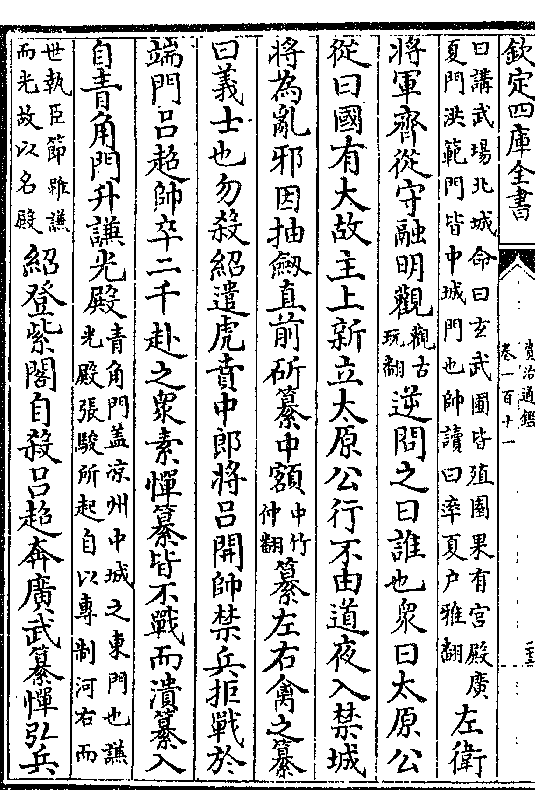 欽定四庫全書
資治通鑑
卷一百十一
曰講武場北城命曰玄武圃皆殖園果有宮殿廣
夏門洪範門皆中城門也帥讀曰率夏户雅翻
左衛
將軍齊從守融明觀
觀古
玩翻
逆問之曰誰也衆曰太原公
從曰國有大故主上新立太原公行不由道夜入禁城
將為亂邪因抽劔真前斫纂中額
中竹
仲翻
纂左右禽之纂
曰義士也勿殺紹遣虎賁中郎將呂開帥禁兵拒戰於
端門呂超帥卒二千赴之衆素憚纂皆不戰而潰纂入
自青角門升謙光殿
青角門蓋凉州中城之東門也謙
光殿張駿所起自以專制河右而
世執臣節雖謙
而光故以名殿
紹登紫閣自殺呂超奔廣武纂憚弘兵